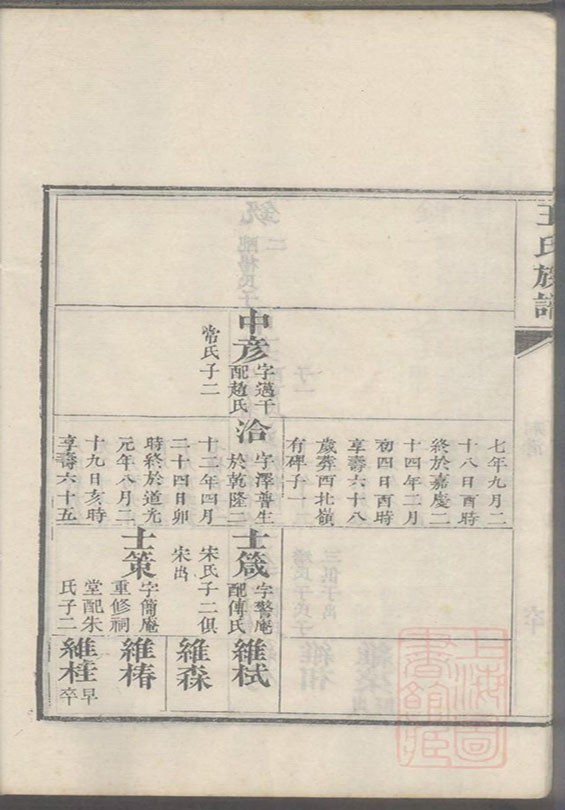 王氏族譜
中彥
字邁千
配趙氏
常氏子二
七年九月二
十八日酉時
終於嘉慶二
十四年二月
初四日酉時
享壽六十八
歲葬西北嶺
有碑子一
洽
字澤普生
於乾隆二
十二年四月
二十四日卯
時終於道光
元年八月二
十九日亥時
享壽六十五
士箴
字警庵
配傅氏
宋氏子二俱
宋出
士策
字簡庵
重修祠
堂配朱
氏子二
維栻
維森
維椿
維桂
早
卒
上海圖
書館藏